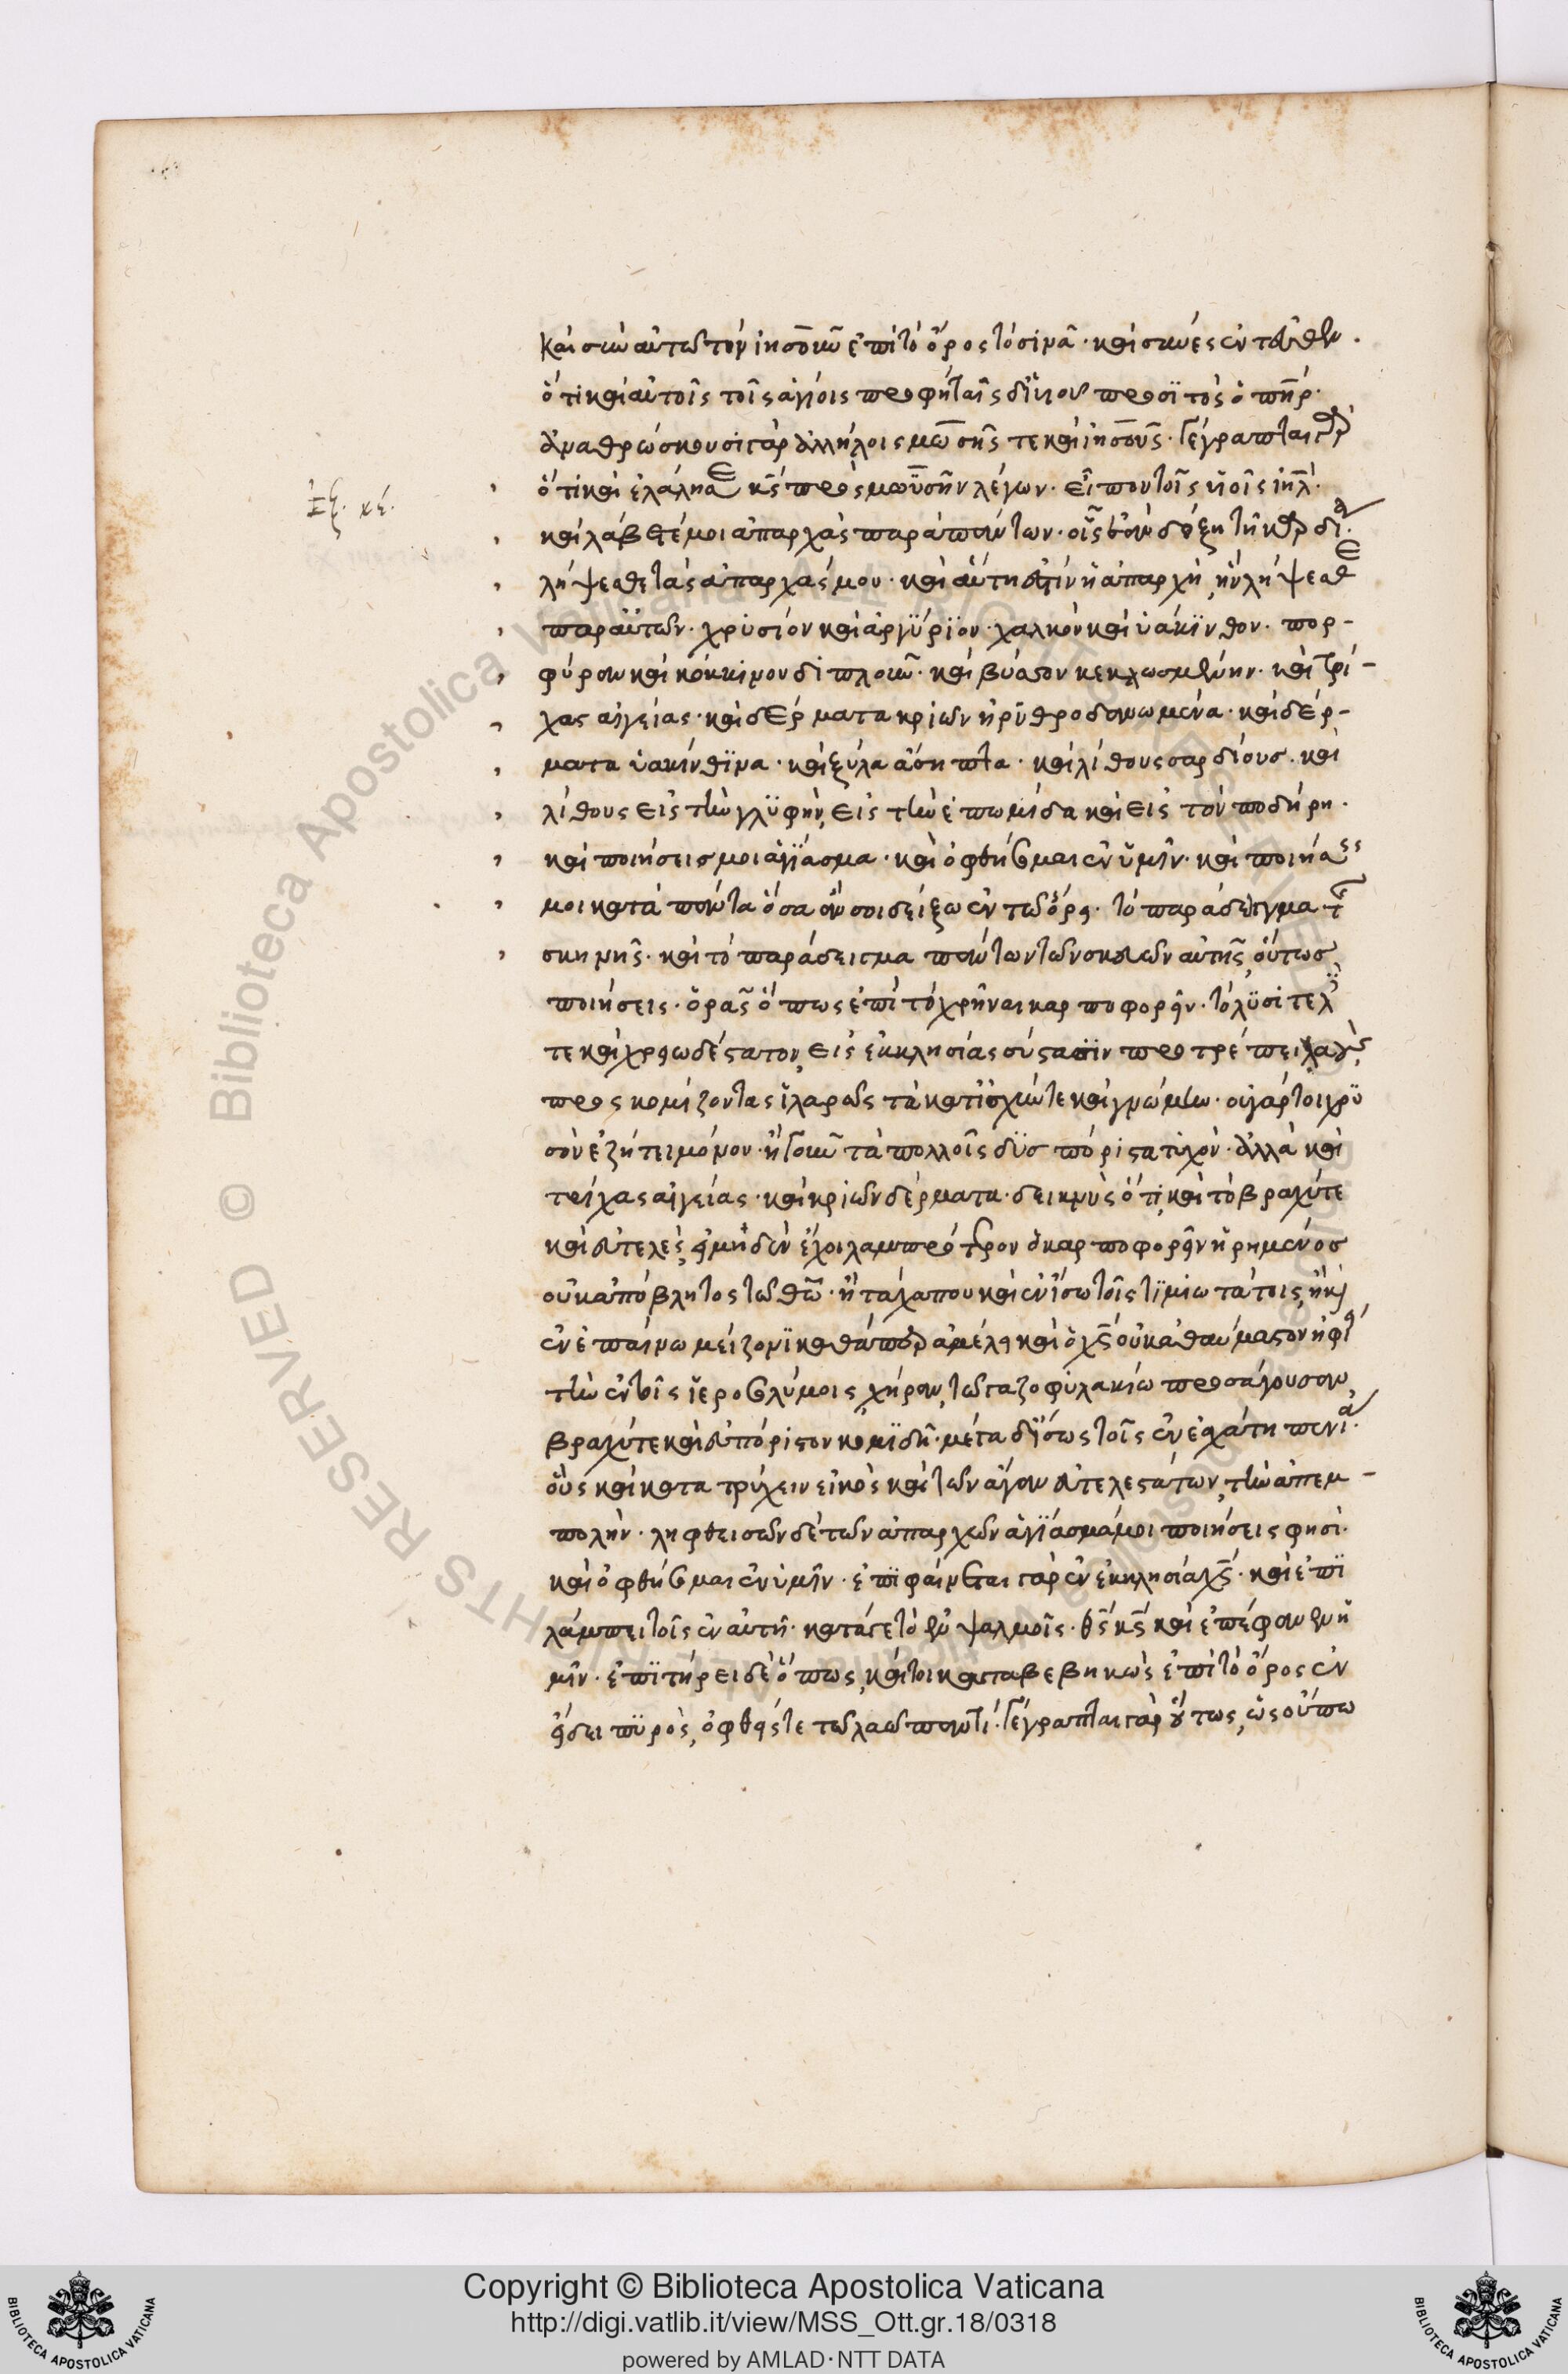 Καὶ σὺν αὐτῷ τὸν ἰησοῦν ἐπὶ τὸ ὄρος τὸ σινᾶ· καὶ συνιεὶς ἐντεῦθεν·
ὅτι καὶ αὐτοῖς τοῖς ἁγίοις προφήταις δι' υἱοῦ προσιτὸς ὁ πῆρ·
ἀναθρώσκουσι γὰρ ἀλλήλοις μωσῆς τε καὶ ἰησοῦς· γέγραπται γὰρ
Ἐξ. κέ.
ὅτι καὶ ἐλάλησε κς πρὸς μωϋσῆν λέγων· εἶπον τοῖς υἱοῖς ιηλ·
καὶ λάβετέ μοι ἀπαρχὰς παρὰ πάντων· οἷς ἐὰν δόξῃ τῇ καρδίᾳ·
λήψεσθε τὰς ἀπαρχάς μου· καὶ αὕτη ἐστὶν ἡ ἀπαρχὴ, ἣν λήψεσθε
παρ' αὐτῶν· χρυσίον καὶ ἀργύριον· χαλκὸν καὶ ὑάκινθον· πορ-
φύραν καὶ κόκκινον διπλοῦν· καὶ βύσσον κεκλωσμένην· καὶ τρί-
χας αἰγείας· καὶ δέρματα κριῶν ἠρυθροδανωμένα· καὶ δέρ-
ματα ὑακίνθινα· καὶ ξύλα ἄσηπτα· καὶ λίθους σαρδίους· καὶ
λίθους εἰς τὴν γλυφὴν, εἰς τὴν ἐπωμίδα καὶ εἰς τὸν ποδήρη·
καὶ ποιήσεις μοι ἁγίασμα· καὶ ὀφθήσομαι ἐν ὑμῖν· καὶ ποιήσεις
μοι κατὰ πάντα ὅσα ἂν σοι δείξω ἐν τῷ ὄρει· τὸ παράδειγμα τῆς
σκηνῆς· καὶ τὸ παράδειγμα πάντων τῶν σκευῶν αὐτῆς, οὕτως
ποιήσεις· ὁρᾶς ὅπως ἐπὶ τὸ χρῆναι καρποφορεῖν· τὸ λυσιτελές
τε καὶ χρειωδέστατον, εἰς ἐκκλησίας σύστασιν προτρέπει λαοὺς,
προσκομίζοντας ἱλαρῶς τὰ κατ' ἰσχύν τε καὶ γνώμην· οὐ γάρ τοι χρυ
σὸν ἐζήτει μόνον· ἤγουν τὰ πολλοῖς δυσπόριστα τυχὸν· ἀλλὰ καὶ
τρίχας αἰγείας· καὶ κριῶν δέρματα· δεικνὺς ὅτι, καὶ τὸ βραχύ τε
καὶ εὐτελὲς, εἰ μηδὲν ἔχοι λαμπρότερον ὁ καρποφορεῖν ᾑρημένος
οὐκ ἀπόβλητος τῷ θῶ· ἢ τάχα που καὶ ἐν ἴσῳ τοῖς τιμιωτάτοις, ἢ καὶ
ἐν ἐπαίνῳ μείζονι· καθάπερ ἀμέλει καὶ ὁ χς οὐκ ἀθαύμαστον ἠφίει
τὴν ἐν τοῖς ἱεροσολύμοις χήραν, τῷ γαζοφυλακίῳ προσάγουσαν,
βραχύ τε καὶ εὐπόριστον κομιδῇ· μέτα δι' ἴσως τοῖς ἐν ἐσχάτῃ πενίᾳ·
οὓς καὶ κατατρύχειν εἰκὸς καὶ τῶν ἄγαν εὐτελεστάτων, τὴν ἀπεμ-
πολὴν· ληφθεισῶν δὲ τῶν ἀπαρχῶν ἁγίασμά μοι ποιήσεις φησὶ·
καὶ ὀφθήσομαι ἐν ὑμῖν· ἐπιφαίνεται γὰρ ἐν ἐκκλησίᾳ χς· καὶ ἐπι
λάμπει τοῖς ἐν αὐτῇ· κατά γε τὸ ἐν ψαλμοῖς· θς κς καὶ ἐπέφανεν ἡ
μῖν· ἐπιτήρει δὲ ὅπως, καίτοι καταβεβηκὼς ἐπὶ τὸ ὄρος ἐν
εἴδει πυρὸς, ὀφθείς τε τῷ λαῷ παντί· γέγραπται γὰρ οὕτως, ὡς οὔπω
Copyright © Biblioteca Apostolica Vaticana
http://digi.vatlib.it/view/MSS_Ott.gr.18/0318
powered by AMLAD·NTT DATA